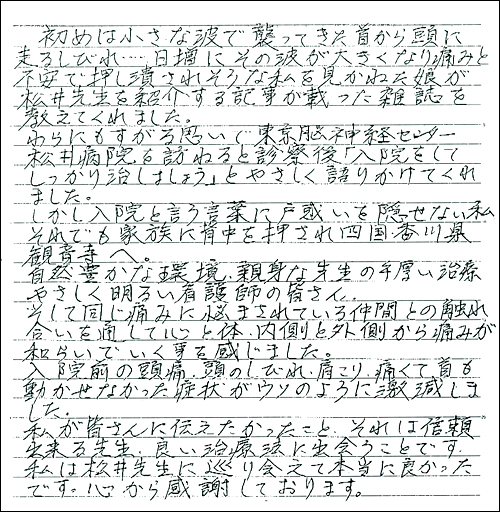 初めは小さな波で襲ってきた首から頭に
走るしびれ…、日増にその波が大きくなり痛みと
不安で押し潰されそうな私を見かねた娘が
松井先生を紹介する記事が載った雑誌を
教えてくれました。
わらにもすがる思いで東京脳神経センター
松井病院を訪ねると診察後「入院をして
しっかり治しましょう」とやさしく語りかけてくれ
ました。
しかし入院と言う言葉に戸惑いを隠せない私
それでも家族に背中を押され四国香川県
観音寺へ。
自然豊かな環境、親身な先生の手厚い治療
やさしく明るい看護師の皆さん、
そして同じ痛みに悩まされている仲間との触れ
合いを通して心と体、内側と外側から痛みが
和らいでいく事を感じました。
入院前の頭痛、頭のしびれ、肩こり、痛くて首も
動かせなかった症状がウソのように激減しま
した。
私が皆さんに伝えたかったこと、それは信頼
出来る先生、良い治療法に出会うことです。
私は松井先生に巡り会えて本当に良かった
です。心から感謝しております。